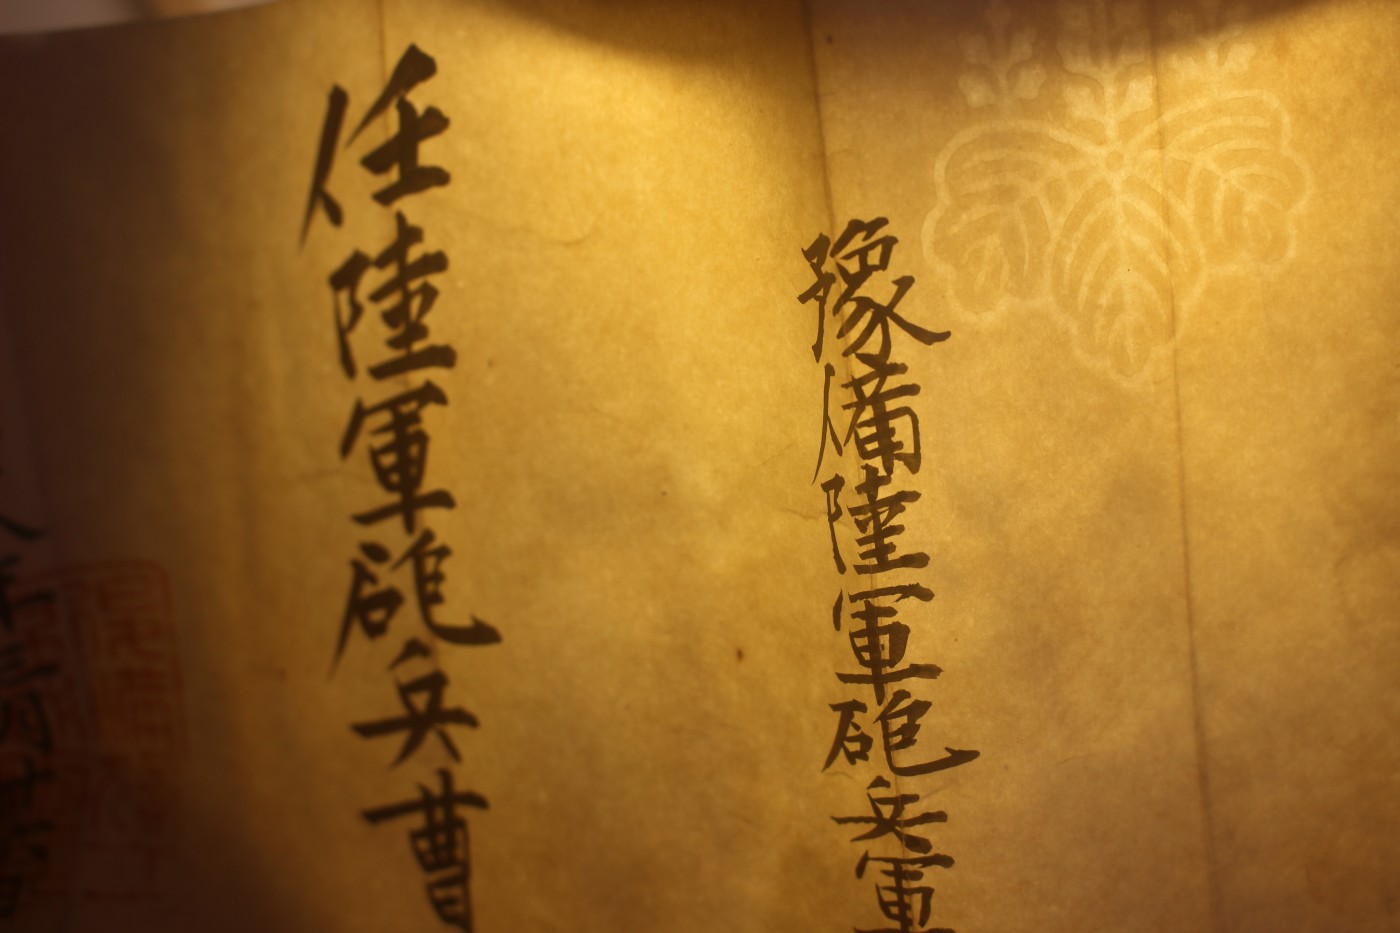 豫備陸軍砲兵軍
任陸軍砲兵曹